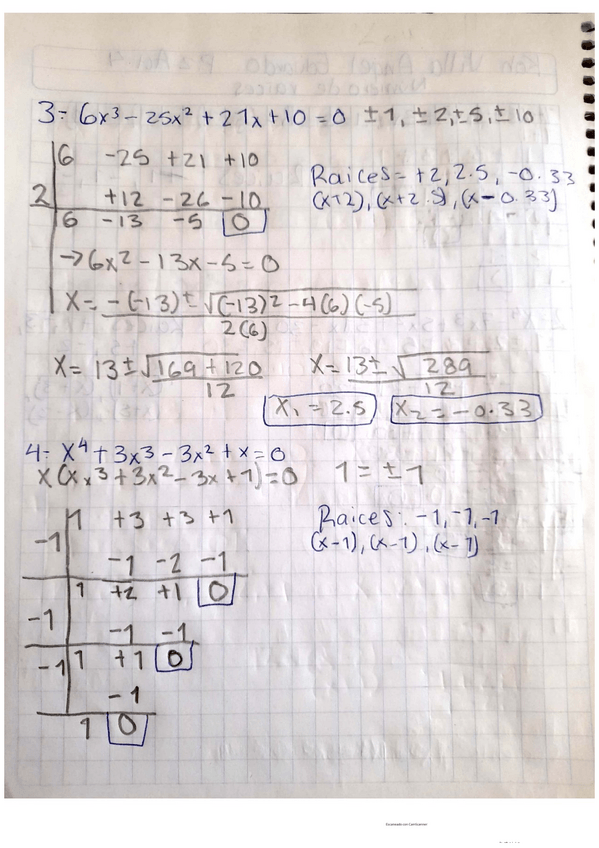 3= 6x³ - 25x² + 21x + 10 = 0 ±1, ±2, ±5, ±10
6 -25 +21 +10
2 +12 -26 -10
6 -13 -5 0
Raices = +2, 2.5, -0.33
(x+2), (x+2.5), (x-0.33)
→ 6x² - 13x - 5 = 0
x = -(-13) ± √(-13)² - 4(6)(-5)
2(6)
x = 13 ± √169 + 120
12
x = 13 ± √289
12
x₁ = 2.5 x₂ = -0.33
4= x⁴ + 3x³ - 3x² + x = 0
x(x³ + 3x² - 3x + 1) = 0 1 = ±1
1 +3 +3 +1
-1 -1 -2 -1
1 +2 +1 0
-1 -1 -1
-1 1 +1 0
-1
1 0
Raices: -1, -1, -1
(x-1), (x-1), (x-1)
Escaneado con CamScanner